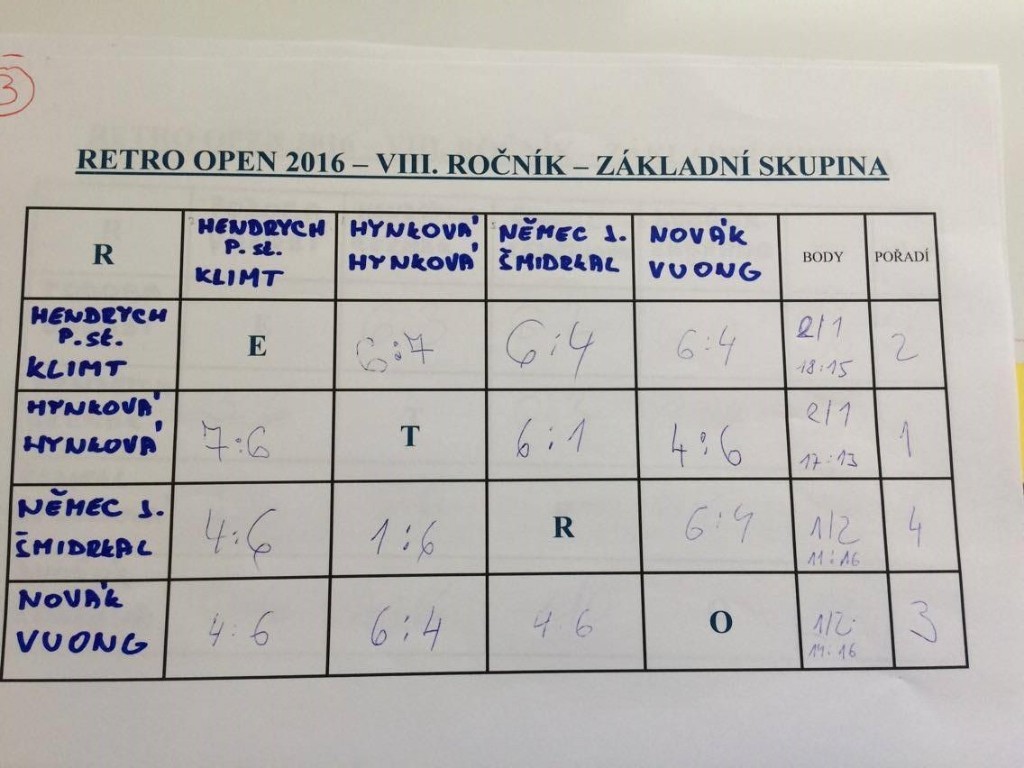 3
RETRO OPEN 2016 – VIII. ROČNÍK – ZÁKLADNÍ SKUPINA
R
HENDRYCH
P. st.
KLIMT
HYNKOVÁ
HYNKOVÁ
NĚMEC J.
ŠMIDRKAL
NOVÁK
VUONG
BODY
POŘADÍ
HENDRYCH
P. st.
KLIMT
E
6:7
6:4
6:4
2/1
18:15
2
HYNKOVÁ
HYNKOVÁ
7:6
T
6:1
4:6
2/1
17:13
1
NĚMEC J.
ŠMIDRKAL
4:6
1:6
R
6:4
1/2
11:16
4
NOVÁK
VUONG
4:6
6:4
4:6
O
1/2
14:16
3